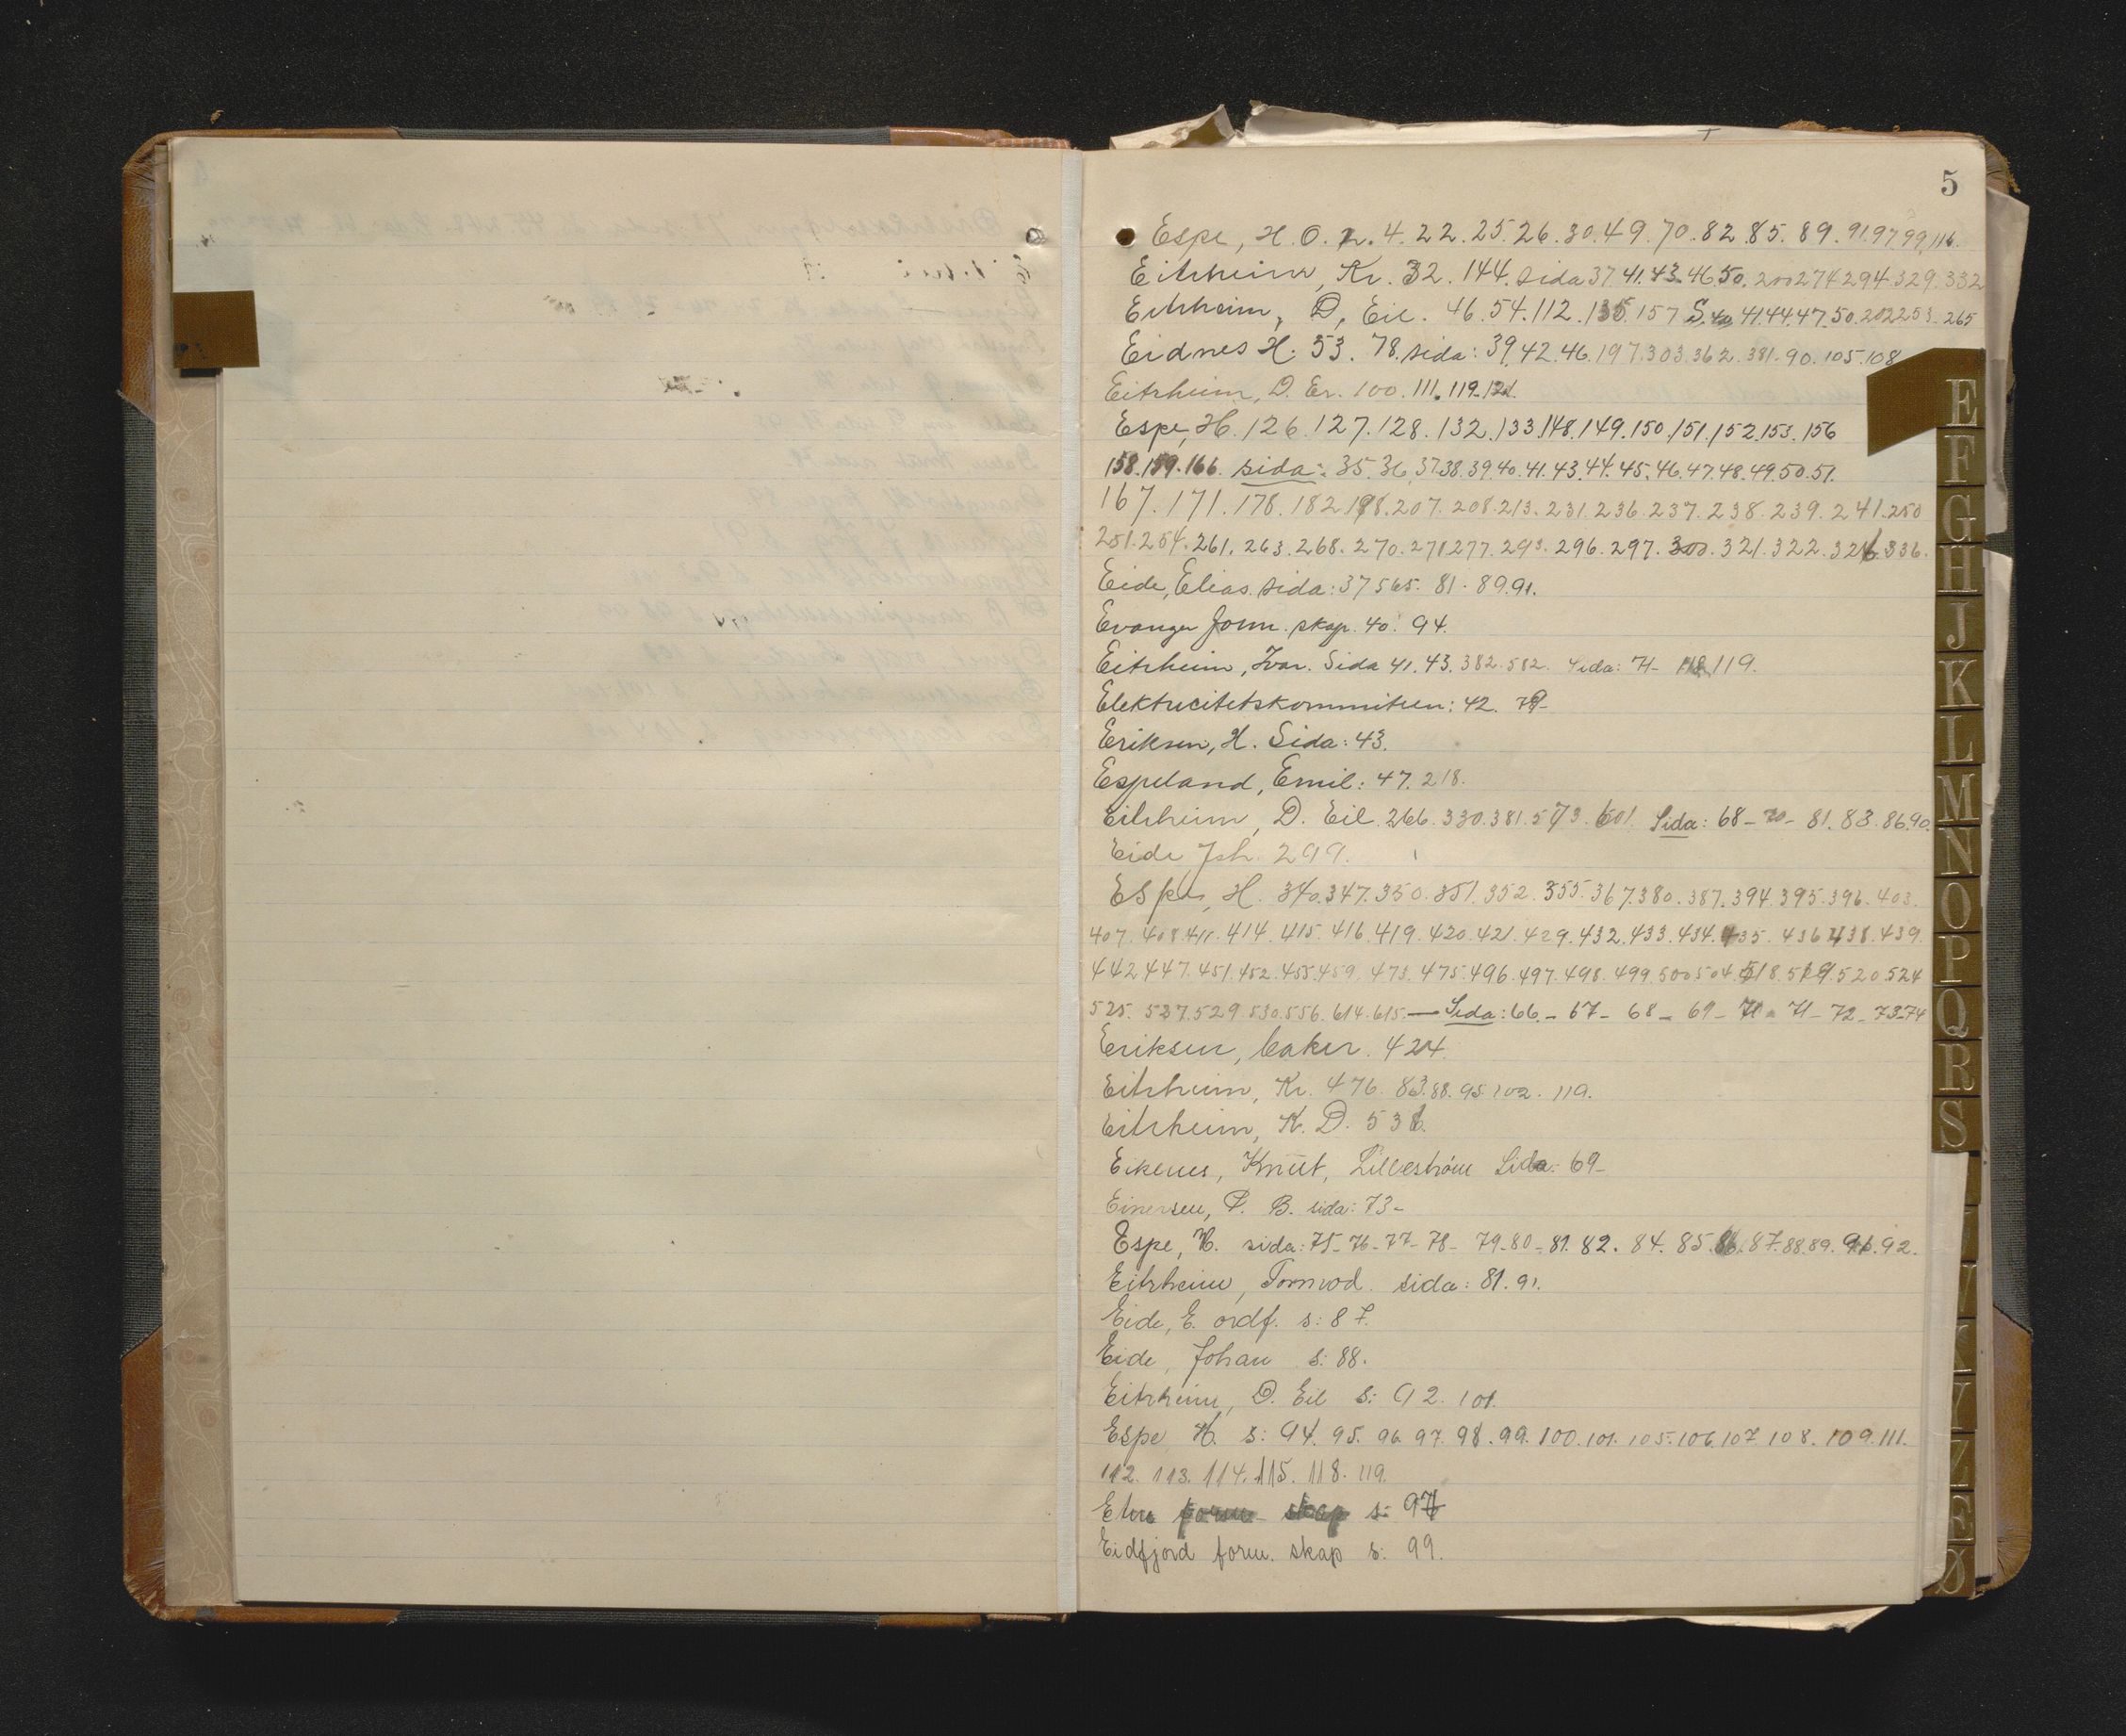 5
Espe, H. O. 2. 4. 22. 25. 26. 30. 49. 70. 82. 85. 89. 91. 97. 99. 116.
Eitrheim, Kr. 32. 144. sida 37. 41. 43. 46. 50. 200 274 294. 329. 332
Eitrheim, D. Eil. 46. 54. 112. 135. 157 S. 40 41. 44. 47. 50. 202 253. 265
Eidnes H. 53. 78. sida: 39. 42. 46. 197. 303. 362. 381. 90. 105. 108
Eitrheim, D. Er. 100. 111. 119. 121.
Espe, H. 126. 127. 128. 132. 133. 148. 149. 150. 151. 152. 153. 156
158. 159. 166. sida: 35. 36. 37. 38. 39. 40. 41. 43. 44. 45. 46. 47. 48. 49. 50. 51.
167. 171. 178. 182 198. 207. 208. 213. 231. 236. 237. 238. 239. 241. 250
251. 254. 261. 263. 268. 270. 271 277. 293. 296. 297. 300. 321. 322. 326. 336.
Eide, Elias. sida: 37 565. 81. 89. 91.
Evanger form. skap. 40. 94.
Eitrheim, Ivar. Sida 41. 43. 382. 582. Sida: 71- 118 119.
Elektricitetskommitteen: 42. 79-
Eriksen, H. Sida: 43.
Espeland, Emil: 47. 218.
Eitrheim, D. Eil. 266. 330. 381. 573. 601. Sida: 68- 70- 81. 83. 86. 90.
Eide Joh. 299.
Espe, H. 340. 347. 350. 351. 352. 355. 367. 380. 387. 394. 395. 396. 403.
407. 408. 411. 414. 415. 416. 419. 420. 421. 429. 432. 433. 434. 435. 436 438. 439.
442 447. 451. 452. 455. 459. 473. 475. 496. 497. 498. 499. 500 504. 518. 519. 520. 524
525. 527. 529. 530. 556. 614. 615. — Sida: 66. - 67- 68- 69- 70- 71- 72- 73-74
Eriksen, baker. 424.
Eitrheim, Kr. 476. 83. 88. 95. 102. 119.
Eitrheim, K. D. 538.
Eikenes, Knut, Lillestrøm Sida: 69-
Einersen, P. B. sida: 73-
Espe, H. sida: 75- 76- 77- 78- 79. 80- 81. 82. 84. 85. 86. 87. 88. 89. 91. 92.
Eitrheim, Tormod. sida: 81. 91.
Eide, E. ordf. s: 87.
Eide, Johan s: 88.
Eitrheim, D. Eil s: 92. 101.
Espe H. s: 94. 95. 96. 97. 98. 99. 100. 101. 105. 106. 107. 108. 109. 111.
112. 113. 114. 115. 118. 119.
Etne form. skap s: 97
Eidfjord form. skap s: 99.
E
F
G
H
J
K
L
M
N
O
P
Q
R
S
Y
Z
Æ
Ø